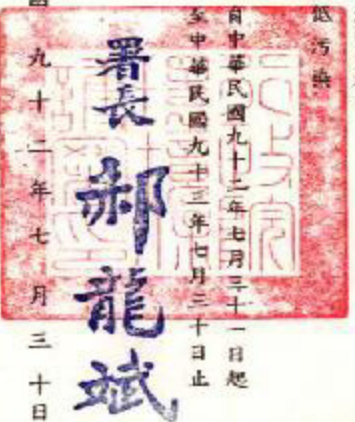 低污染
自中華民國九十二年七月三十一日起
至中華民國九十三年七月三十日止
署長 郝龍斌
九十二年七月三十日